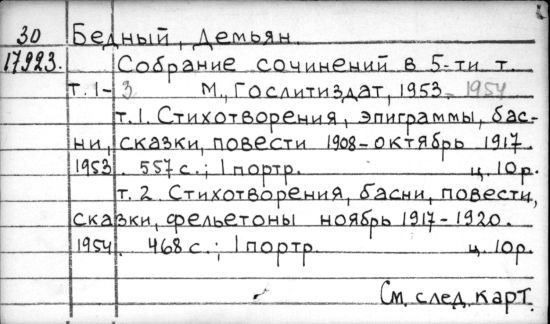 30 Бедный, Демьян.
17923. Собрание сочинений в 5-ти т.
т. 1- 3. М., Гослитиздат, 1953 - 1954
т. 1. Стихотворения, эпиграммы, бас-
ни, сказки, повести 1908-октябрь 1917.
1953. 557 с.; 1 портр. ц. 10 р.
т. 2. Стихотворения, басни, повести,
сказки, фельетоны ноябрь 1917-1920.
1954. 468 с.; 1 портр. ц. 10р.
См. след. карт.